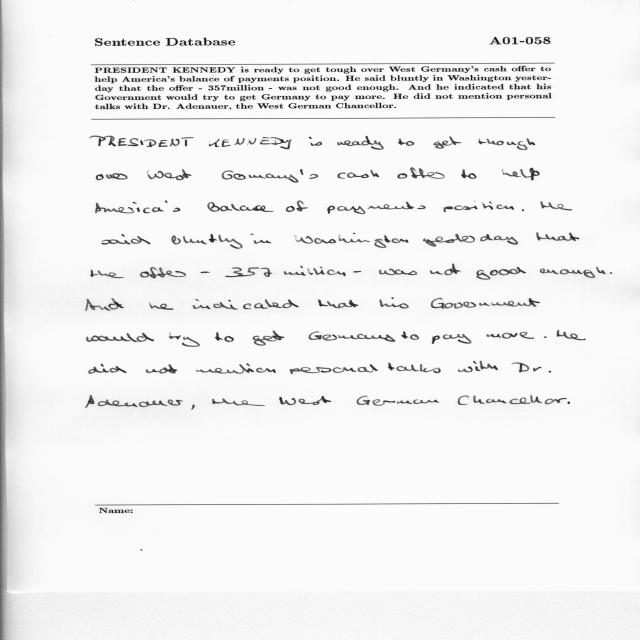 Sentence Database A01-058
PRESIDENT KENNEDY is ready to get tough over West Germany's cash offer to
help America's balance of payments position. He said bluntly in Washington yester-
day that the offer - 357million - was not good enough. And he indicated that his
Government would try to get Germany to pay more. He did not mention personal
talks with Dr. Adenauer, the West German Chancellor.
PRESIDENT KENNEDY is ready to get though
over West Germany's cash offer to help
America's Balance of payments position. He
said bluntly in Washington yesterday that
the offer - 357 million - was not good enough.
And he indicated that his Government
would try to get Germany to pay more. He
did not mention personal talks with Dr.
Adenauer, the West German Chancellor.
Name: